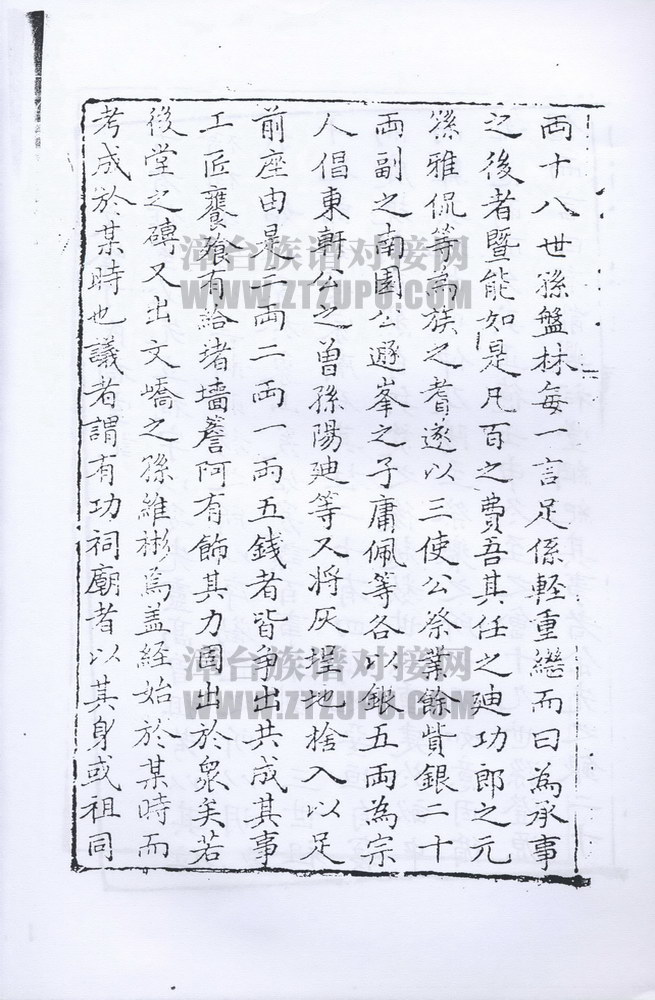 両十八世孫盤林每一言足係軽重繼而曰為承事
之後者暨能如是凡百之費吾其任之廸功郎之元
孫雅侃等為族之耆遂以三使公祭業餘貲銀二十
両副之南園公遯峯之子庸佩等各以銀五両為宗
人倡東軒公之曽孫陽廸等又將灰埕地捨入以足
前座由是三両二両一両五錢者皆争出共成其事
工匠饔飱有給堵墻簷阿有飾其力固出於衆矣若
後堂之磚又出文嶠之孫維彬焉盖経始於某時而
考成於某時也議者謂有功祠廟者以其身或祖同
漳台族谱对接网
WWW.ZTZUPU.COM
漳台族谱对接网
WWW.ZTZUPU.COM